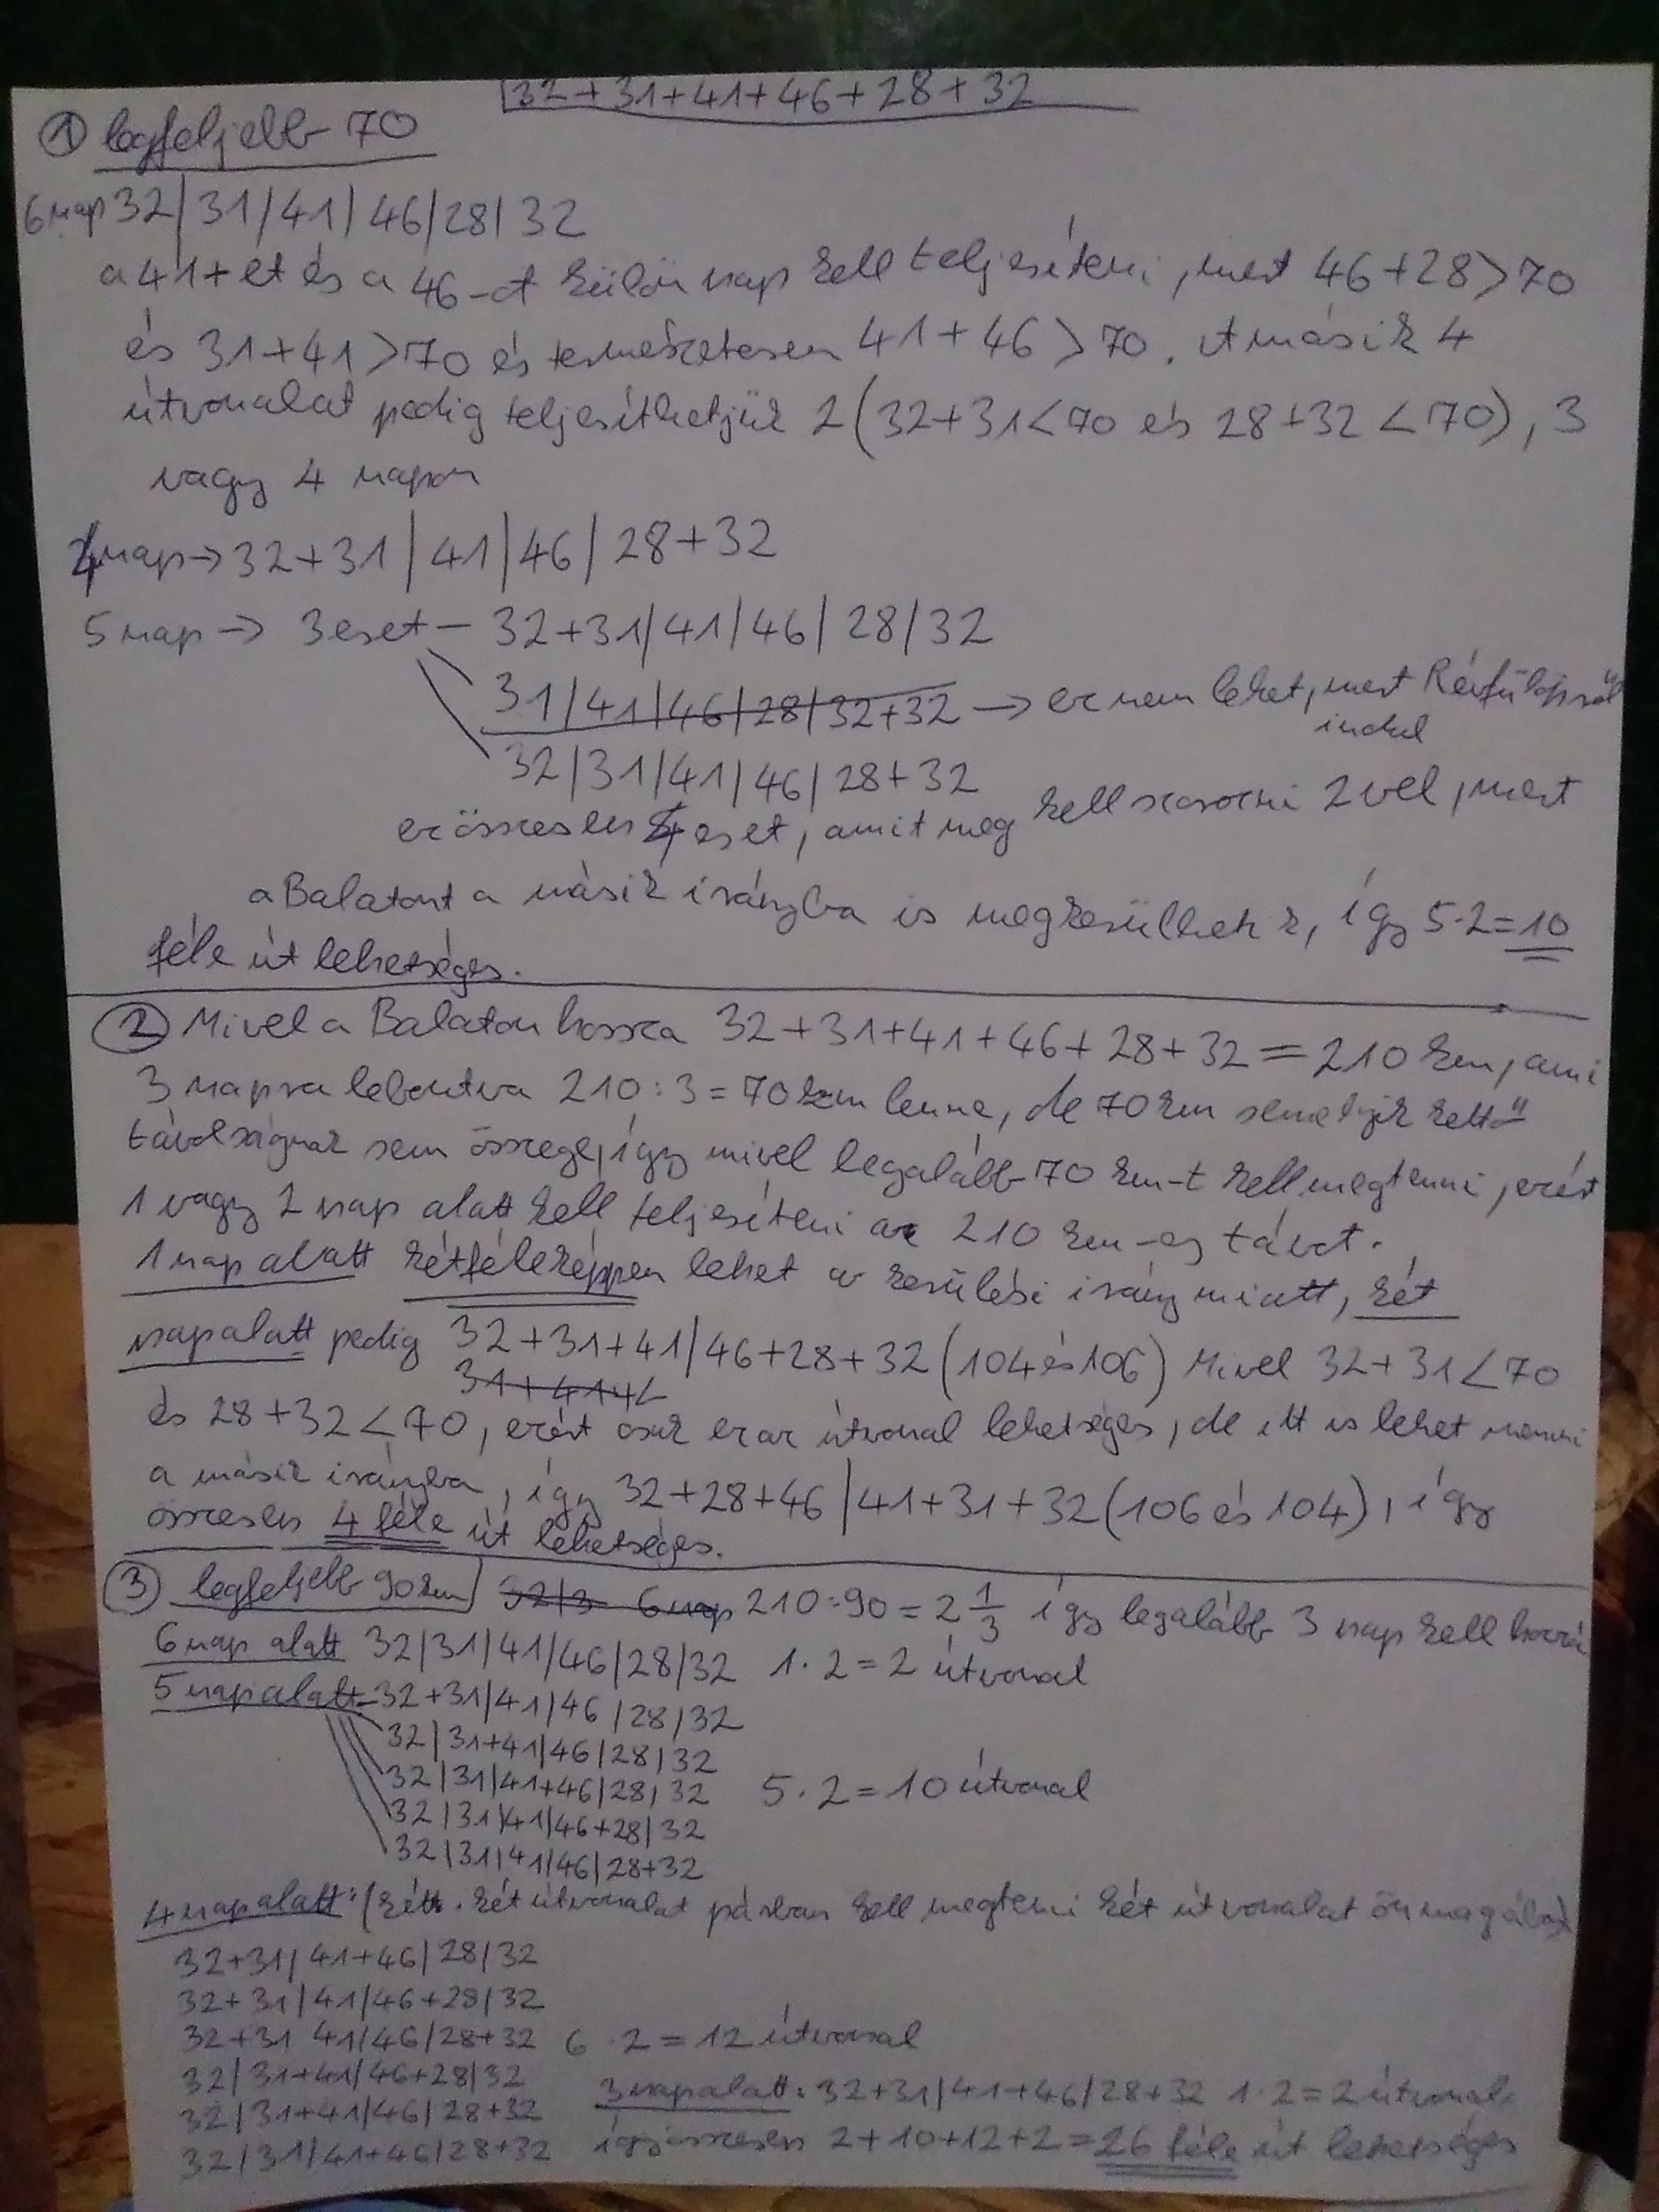 32+31+41+46+28+32
① legfeljebb 70
6 nap 32|31/41/46/28/32
a 41+et és a 46-ot külön nap kell teljesíteni, mert 46+28>70
és 31+41>70 és természetesen 41+46>70. A másik 4
útvonalat pedig teljesíthetjük 2(32+31<70 és 28+32<70), 3
vagy 4 napon
4 nap→32+31|41|46|28+32
5 nap→ 3 eset – 32+31|41|46|28/32
31/41/46/28/32+32 → ez nem lehet, mert Révfülöpről
indul
32|31/41/46/28+32
ez összesen eset, amit meg kell szorozni 2vel, mert
a Balatont a másik irányba is megkerülheti, így 5·2=10
féle út lehetséges.
② Mivel a Balaton hossza 32+31+41+46+28+32=210 km, ami
3 napra lebontva 210:3=70km lenne, de 70km semelyik kettő
távolságnak sem összege, így mivel legalább 70 km-t kell megtenni, ezért
1 vagy 2 nap alatt kell teljesíteni a 210 km-es távot.
1 nap alatt kétféleképpen lehet a kerülési irány miatt, két
nap alatt pedig 32+31+41|46+28+32(104 és 106) Mivel 32+31<70
31+41+4
és 28+32<70, ezért csak ez az útvonal lehetséges, de itt is lehet menni
a másik irányba, így 32+28+46|41+31+32(106 és 104), így
összesen 4 féle út lehetséges.
③ legfeljebb 90km 32/3 6 nap 210:90=2 1/3 így legalább 3 nap kell hozzá
6 nap alatt 32/31/41/46/28/32 1·2=2 útvonal
5 nap alatt–32+31/41/46/28/32
32|31+41/46/28/32
32|31/41+46/28/32 5·2=10 útvonal
32|31/41/46+28/32
32|31/41/46/28+32
4 nap alatt: (két útvonalat párban kell megtenni két útvonalat önmagában)
32+31/41+46/28/32
32+31/41/46+28/32
32+31 41/46/28+32 6·2=12 útvonal
32/31+41/46+28/32
3 nap alatt: 32+31/41+46/28+32 1·2=2 útvonal
32/31+41/46/28+32
32/31/41+46/28+32 így összesen 2+10+12+2=26 féle út lehetséges